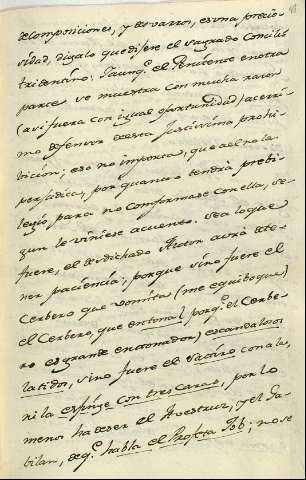 decomposiciones, y de varro, es una precio
sidad, digalo que disere el Sagrado Concilio
tridentino: Y aunq.e el Penitente en otra
parte se muestra con mucha razon
(asi fuera con igual oportunidad) acerri
mo defensor de esta justissima prohi
vicion; eso no importa, que a el no la
perjudica, por quanto tendrà preVi
legio para no comformarse con ella, se
gun le viniese acuento. Sea lo que
fuere, el desdichado Autor aurà de te
ner paciencia; porque sino fuere el
Cerbero que vomita (me equiboque)
el Cerbero, que entona (porq.e el Cerbe
ro es grande entonador) escandalosos
latidos, sino fuere el Satiro con a la,
ni la espinge con tres Caras, por lo
menos ha de ser el Avestruz, y el Ga
bilan, de q.e habla el Profeta Job; no se